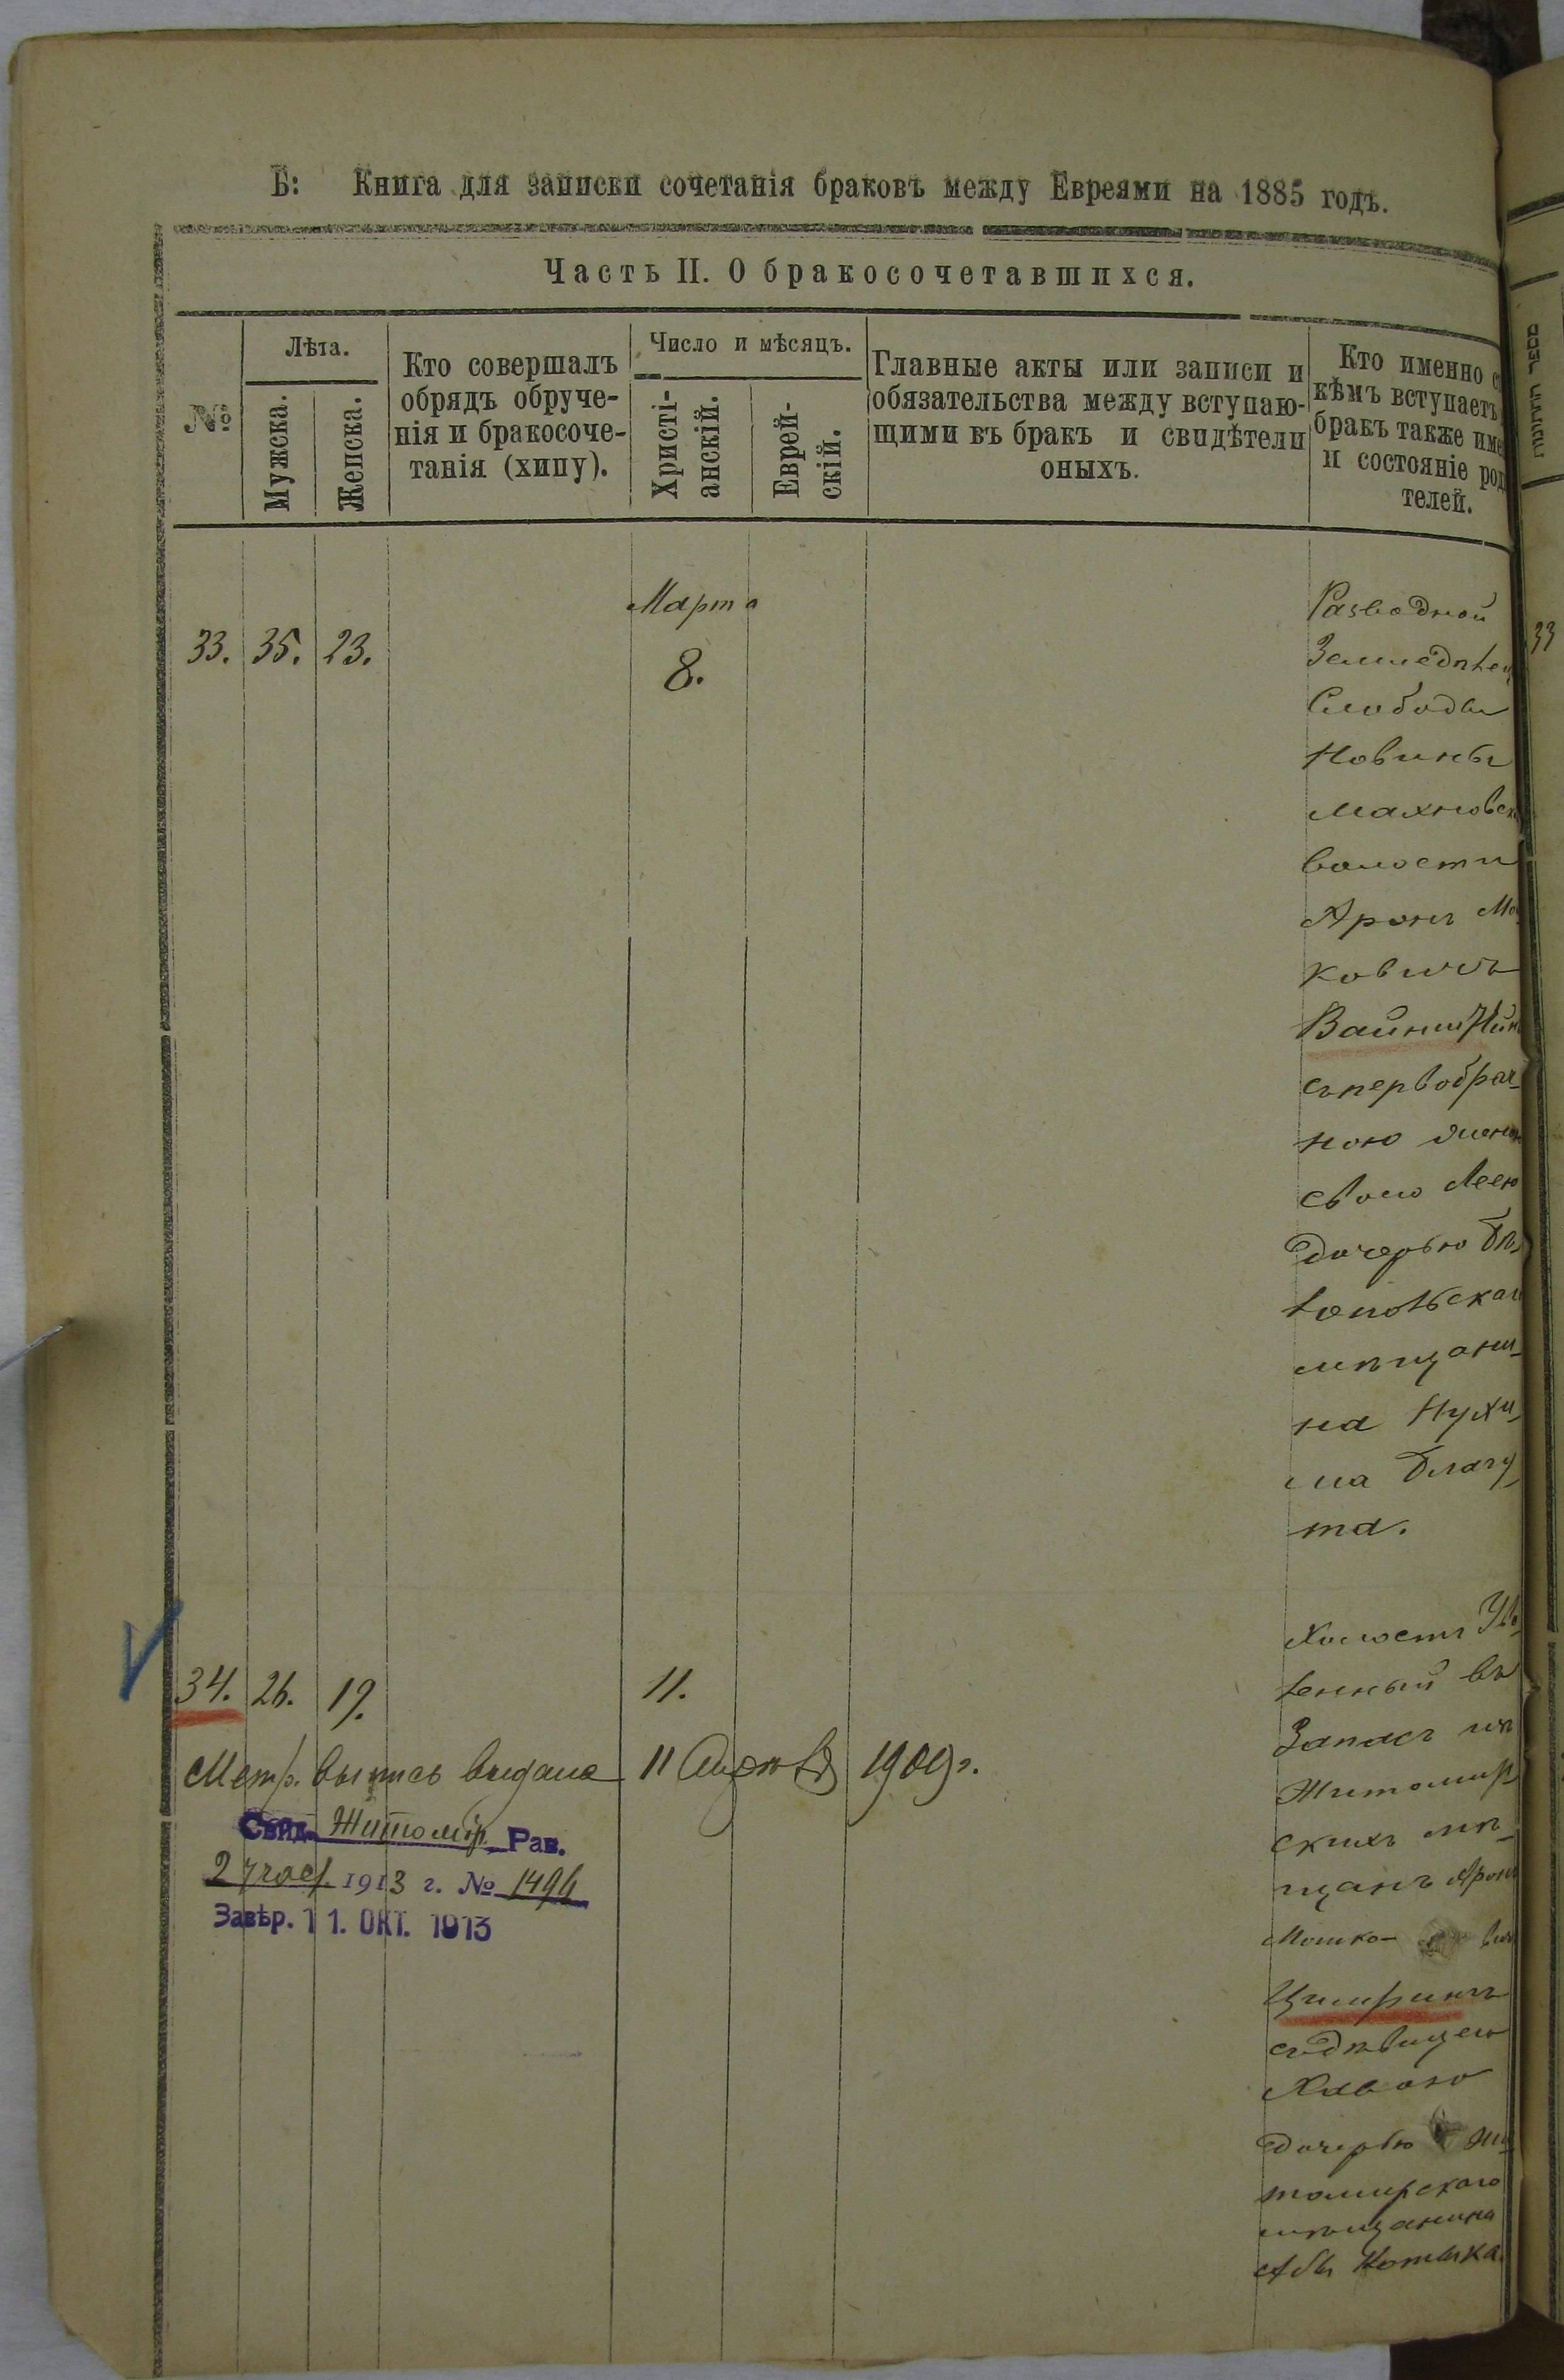 Б: Книга для записки сочетанія браковъ между Евреями на 1885 годъ.
Часть II. О бракосочетавшихся.
№
Лѣта.
Мужска.
Женска.
Кто совершалъ
обрядъ обруче-
нія и бракосоче-
танія (хипу).
Число и мѣсяцъ.
Христі-
анскій.
Еврей-
скій.
Главные акты или записи и
обязательства между вступаю-
щими въ бракъ и свидѣтели
оныхъ.
Кто именно с
кѣмъ вступаетъ
бракъ также име
и состояніе род
телей.
33. 35. 23.
Марта
8.
Разводной
Земледѣлец
Слободы
Новины
Махновск
волости
Аронъ Мо
ковичъ
съпервобрач-
ною женою
своею Леею
дочерью Бѣ
лопольскаг
мѣщани-
на Нухи
ма
та.
33
34. 26. 19.
11.
Холостъ Ув
ленный въ
Запасъ изъ
Житомир
скихъ мѣ-
щанъ Аронъ
Мошко- вич
Цимринъ
съдѣвицею
Хавою
дочерью Жи
томирскаго
мѣщанина
Абы Котика.
Метр. выпись выдана 11 1909 г.
Свид. Житомір. Рав.
2 част. 1913 г. № 1496
Завѣр. 11. ОКТ. 1913